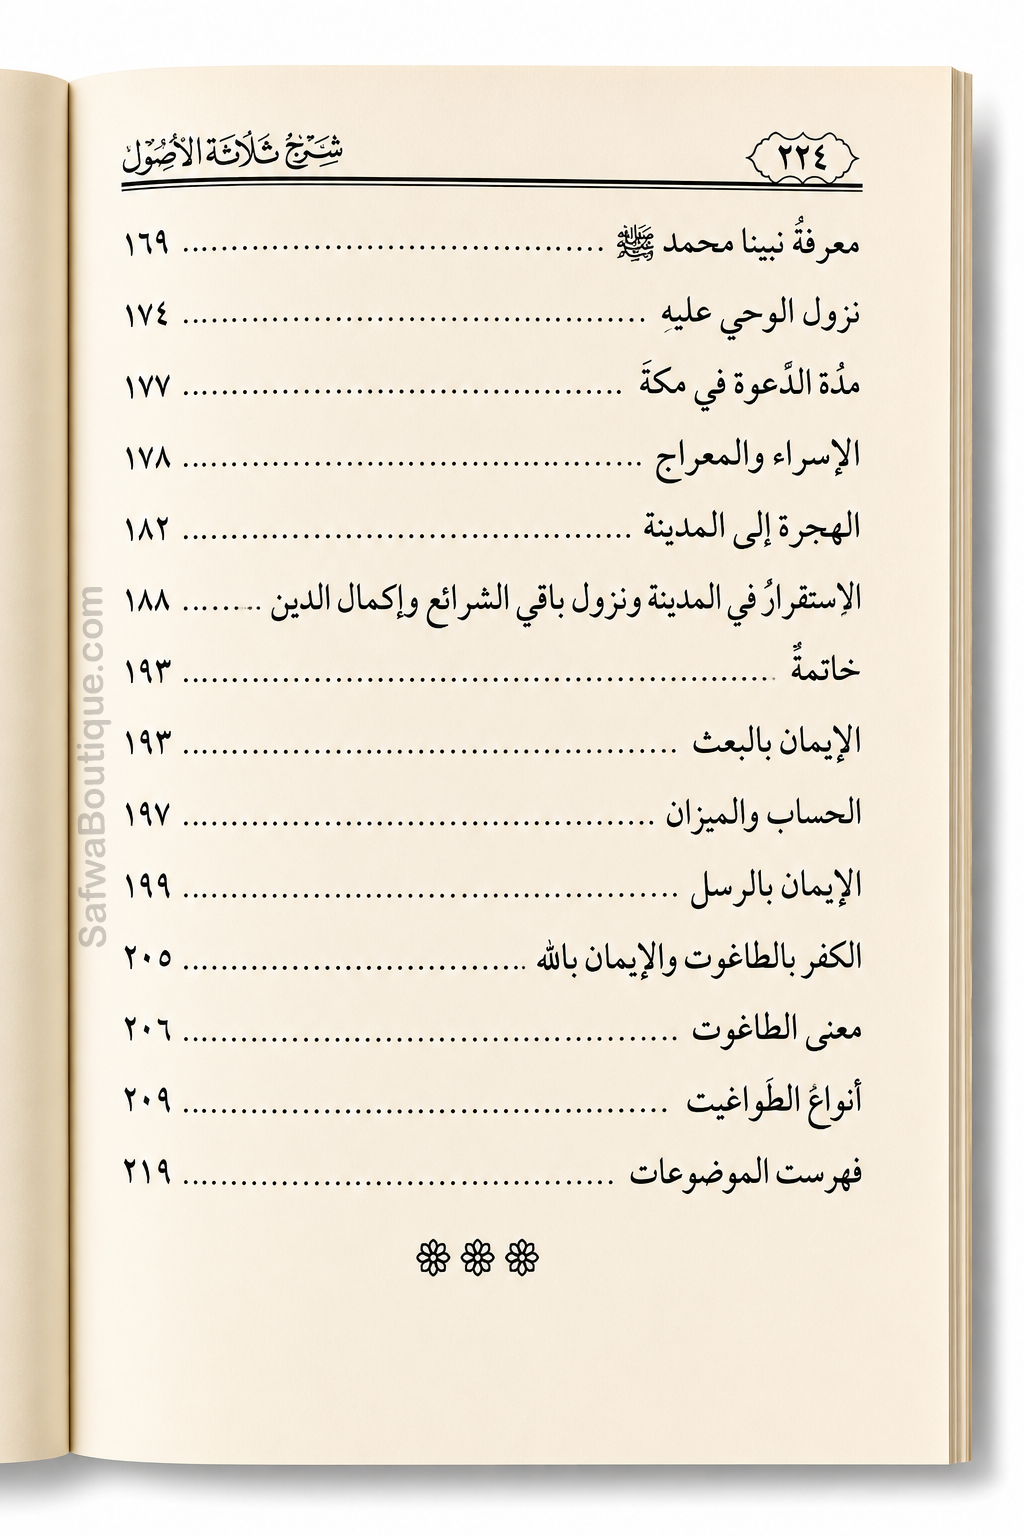 شَرْحُ ثَلَاثَة الأُصُول ٢٢٤
معرفةُ نبينا محمد ﷺ ........................................ ١٦٩
نزول الوحي عليهِ ........................................ ١٧٤
مدُة الدَّعوة في مكةَ ........................................ ١٧٧
الإسراء والمعراج ........................................ ١٧٨
الهجرة إلى المدينة ........................................ ١٨٢
الاِستقرارُ في المدينة ونزول باقي الشرائع وإكمال الدين ......... ١٨٨
خاتمةٌ ........................................ ١٩٣
الإيمان بالبعث ........................................ ١٩٣
الحساب والميزان ........................................ ١٩٧
الإيمان بالرسل ........................................ ١٩٩
الكفر بالطاغوت والإيمان بالله .............................. ٢٠٥
معنى الطاغوت ........................................ ٢٠٦
أنواعُ الطَواغيت ........................................ ٢٠٩
فهرست الموضوعات ........................................ ٢١٩
SafwaBoutique.com